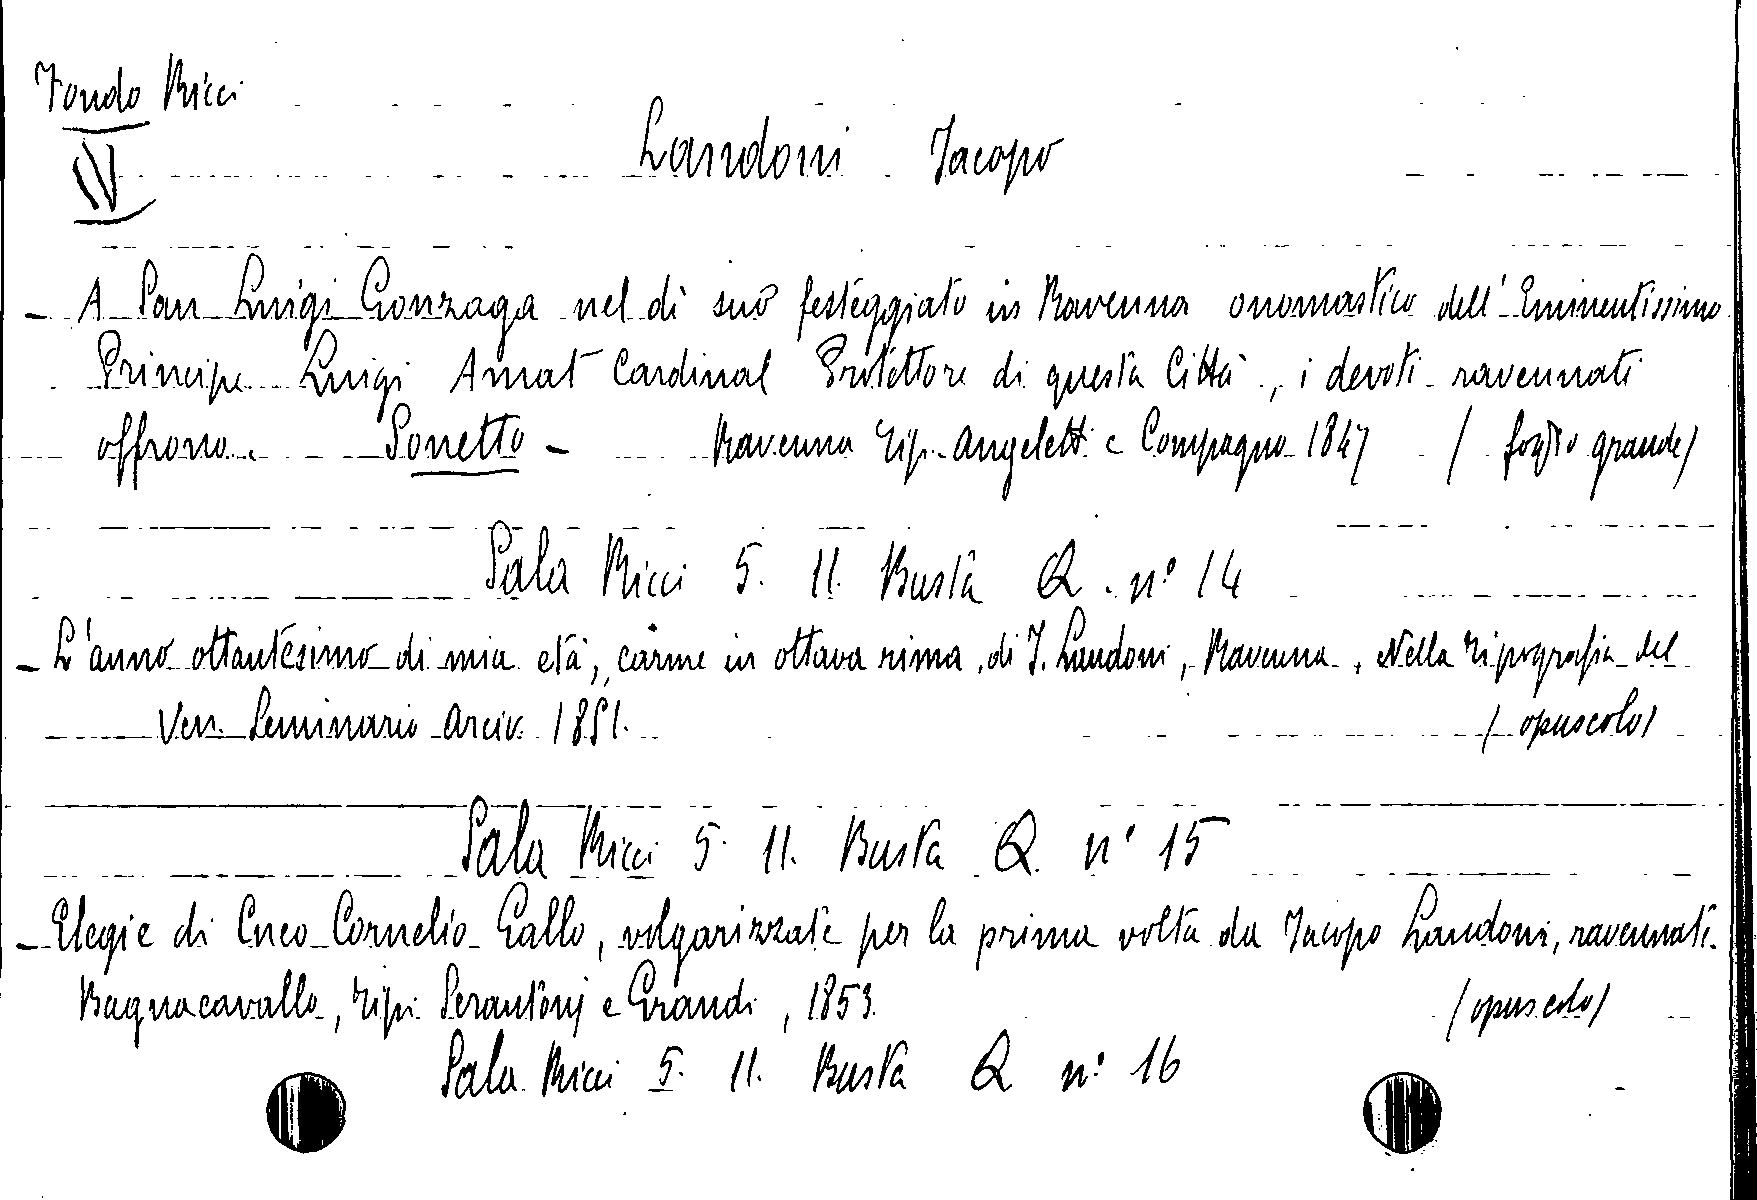 Fondo Ricci
IV
Landoni Jacopo
- A San Luigi Gonzaga nel dì suo festeggiato in Ravenna onomastico dell'Eminentissimo
Principe Luigi Amat Cardinal Protettore di questa Città, i devoti ravennati
offrono. Sonetto - Ravenna Tip. Angeletti e Compagno 1847 (foglio grande)
Sala Ricci 5. 11. Busta Q. n° 14
- L'anno ottantesimo di mia età, carme in ottava rima, di J. Landoni, Ravenna, Nella Tipografia del
Ven. Seminario Arciv. 1851. (opuscolo)
Sala Ricci 5. 11. Busta Q. n° 15
- Elegie di Cneo Cornelio Gallo, volgarizzate per la prima volta da Jacopo Landoni, ravennate.
Bagnacavallo, Tip. Serantoni e Grandi, 1853. (opuscolo)
Sala Ricci 5. 11. Busta Q n° 16